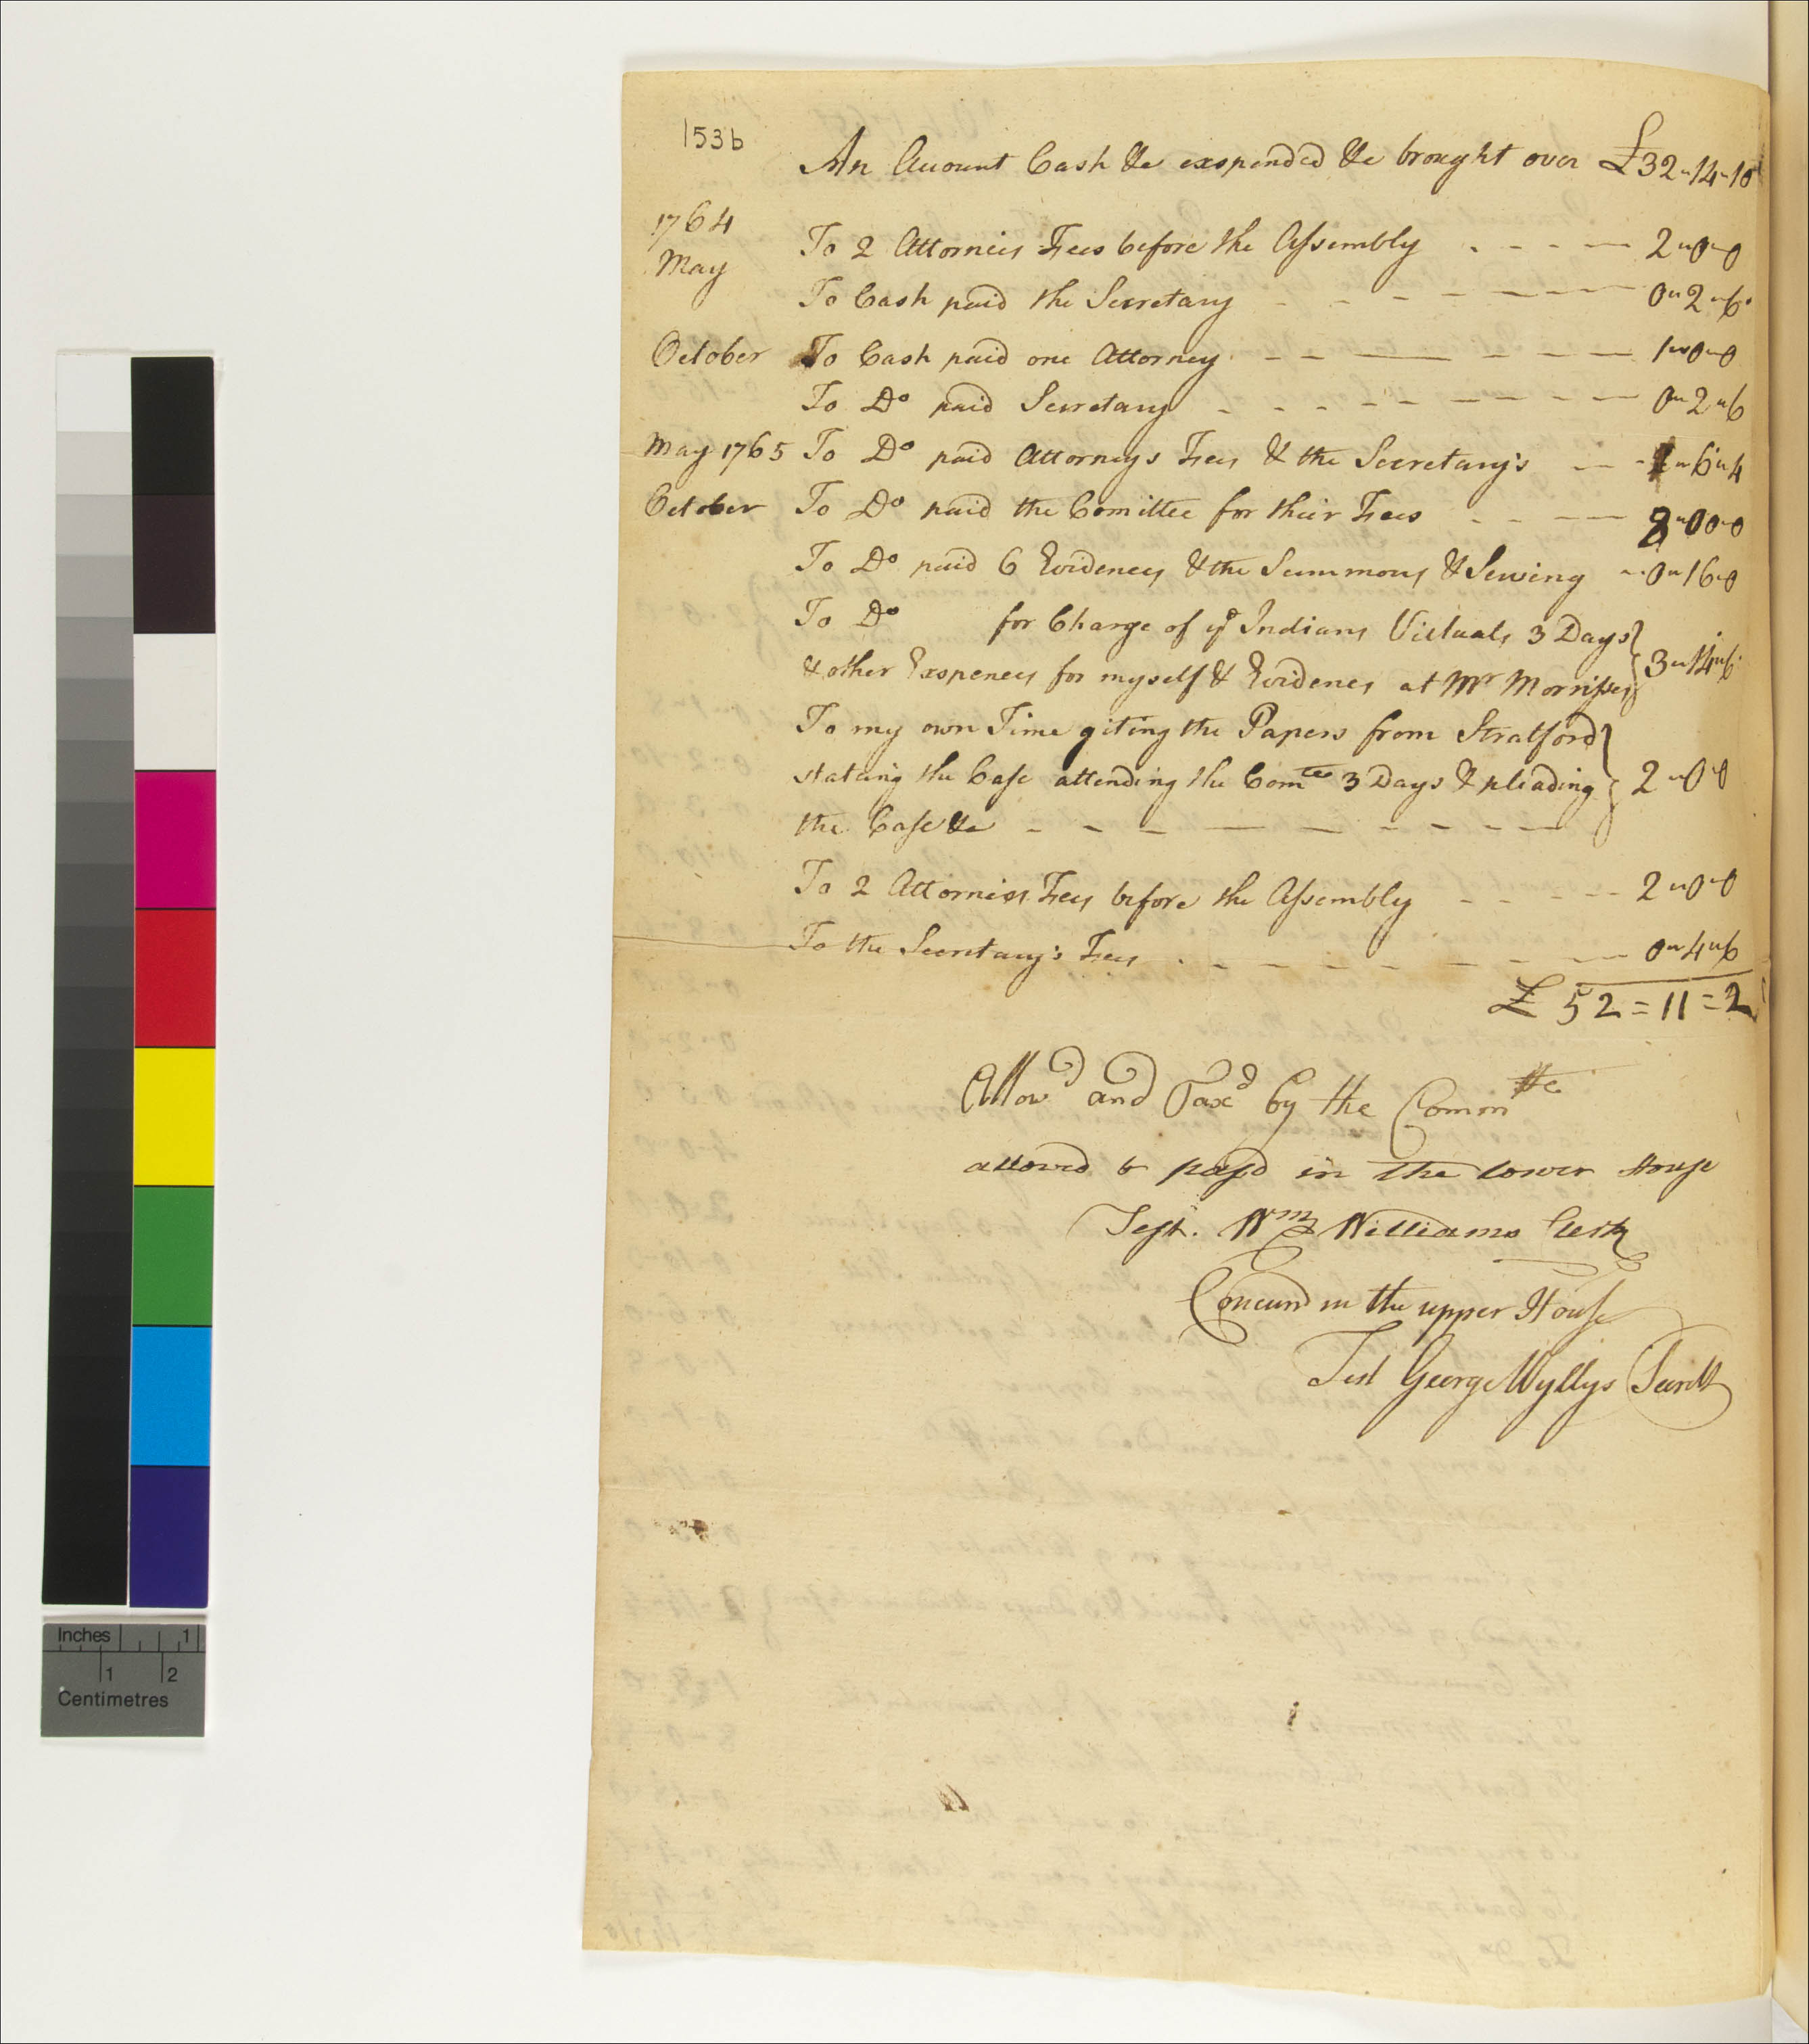 153b
An Account Cash &c exspended &c brought over £32-14-10
1764
May
To 2 Attorneis Fees before the Assembly - - - - 2-0-0
To Cash paid the Secretary - - - - - - - 0-2-6
October To Cash paid one Attorney - - - - - - - 1-0-0
To Do paid Secretary - - - - - - - - - 0-2-6
May 1765 To Do paid Attorneys Fees & the Secretary's - - 1-6-4
October To Do paid the Comittee for their Fees - - - - 8-00-0
To Do paid 6 Evidences & the Summons & Serving - 0-16-0
To Do for Charge of ye Indians Victuals 3 Days
& other Exspences for myself & Evidences at Mr Morrisses 3-14-6
To my own Time giting the Papers from Stratford
stateing the Case attending the Comtee 3 Days & pleading 2-0-0
the Case &c - - - - - - - - - -
To 2 Attornies Fees before the Assembly - - - - 2-0-0
To the Secretary's Fees - - - - - - - - - 0-4-6
£ 52=11=2
Allowd and Taxd by the Commtte
allowed & passd in the lower House
Test. Wm Williams Clerk
Concurd in the upper House
Test George Wyllys Secrety
Inches 1
1 2
Centimetres